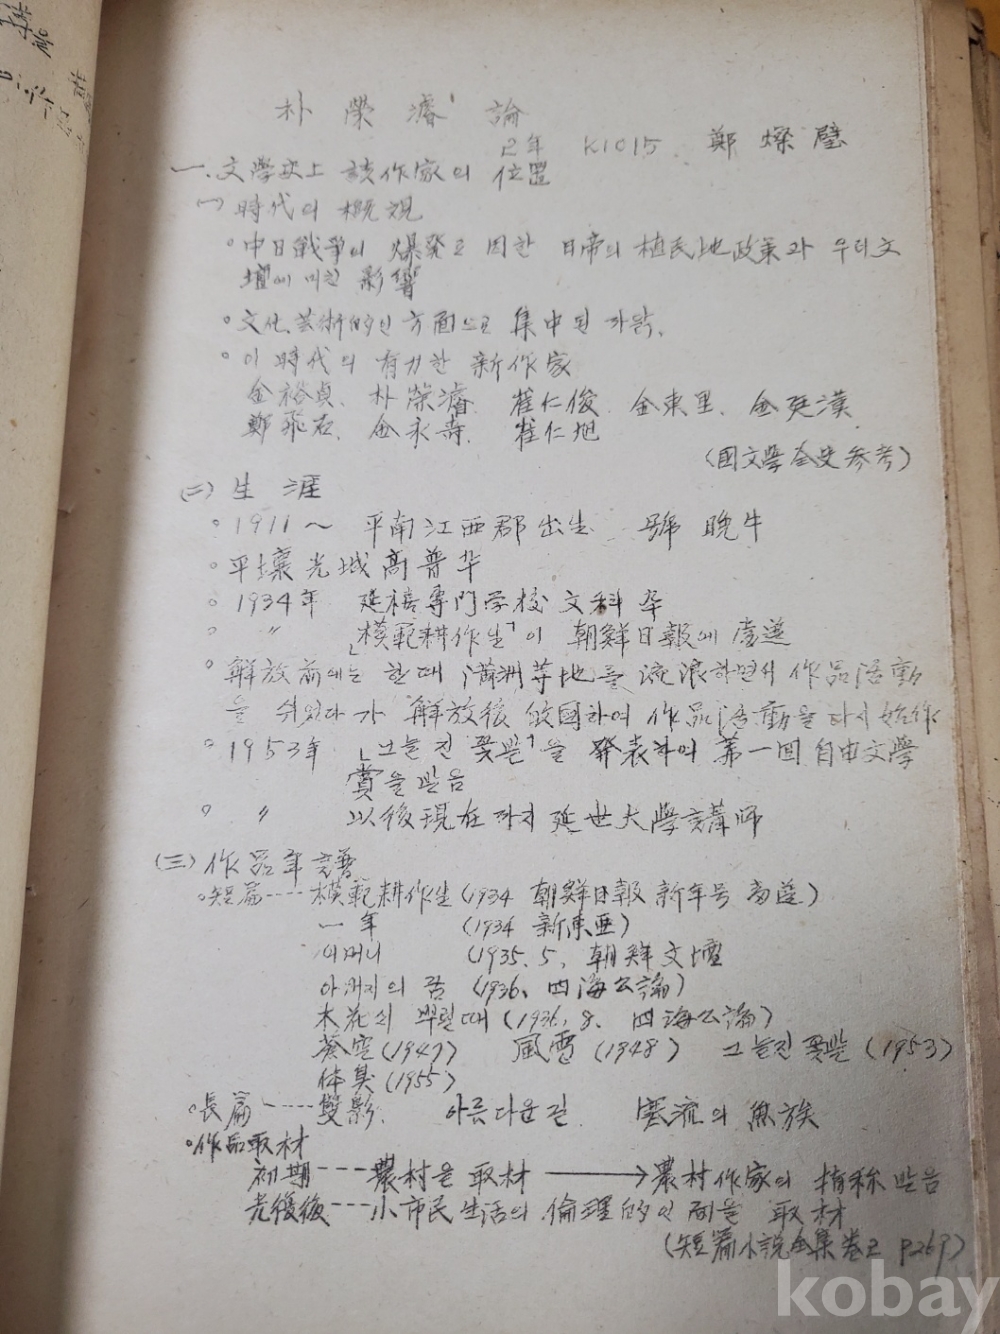 朴榮濬 論
2年 K1015 鄭燦
一. 文學史上 該作家의 位置
(一) 時代의 槪觀
◦ 中日戰爭의 爆発로 因한 日帝의 植民地政策과 우리文
壇에 미친 影響
◦ 文化, 芸術的인 方面으로 集中된 까닭.
◦ 이 時代의 有力한 新作家
金裕貞. 朴榮濬. 崔仁俊. 金東里. 金廷漢.
鄭飛石. 金永壽. 崔仁旭
(國文學全史 参考)
(二) 生 涯
◦ 1911 ~ 平南江西郡 出生 號 晩牛
◦ 平壤光城高普 卒
◦ 1934年 延禧専門学校 文科 卒
◦ 〃 「模範耕作生」이 朝鮮日報에 當選
◦ 解放前에는 한때 滿洲等地를 流浪하면서 作品活動
을 쉬었다가 解放後 歸國하여 作品活動을 다시 始作
◦ 1953年 「그늘진 꽃밭」을 發表하여 第一回 自由文學
賞을 받음
◦ 〃 以後現在까지 延世大學講師
(三) 作品年譜
◦短篇---- 模範耕作生 (1934 朝鮮日報 新年号 當選)
一年 (1934 新東亜)
어머니 (1935. 5. 朝鮮文壇
아버지의 꿈 (1936, 四海公論)
木花씨 뿌릴때 (1936, 8. 四海公論)
蒼空 (1947) 風雪 (1948) 그늘진 꽃밭 (1953)
体臭 (1955)
◦長篇----- 雙影. 아름다운 길 寒流의 魚族
◦作品取材
初期--- 農村을 取材 ⟶ 農村作家의 指称 받음
光復後--- 小市民生活의 倫理的인 面을 取材
(短篇小說全集 卷2 P269)
kobay